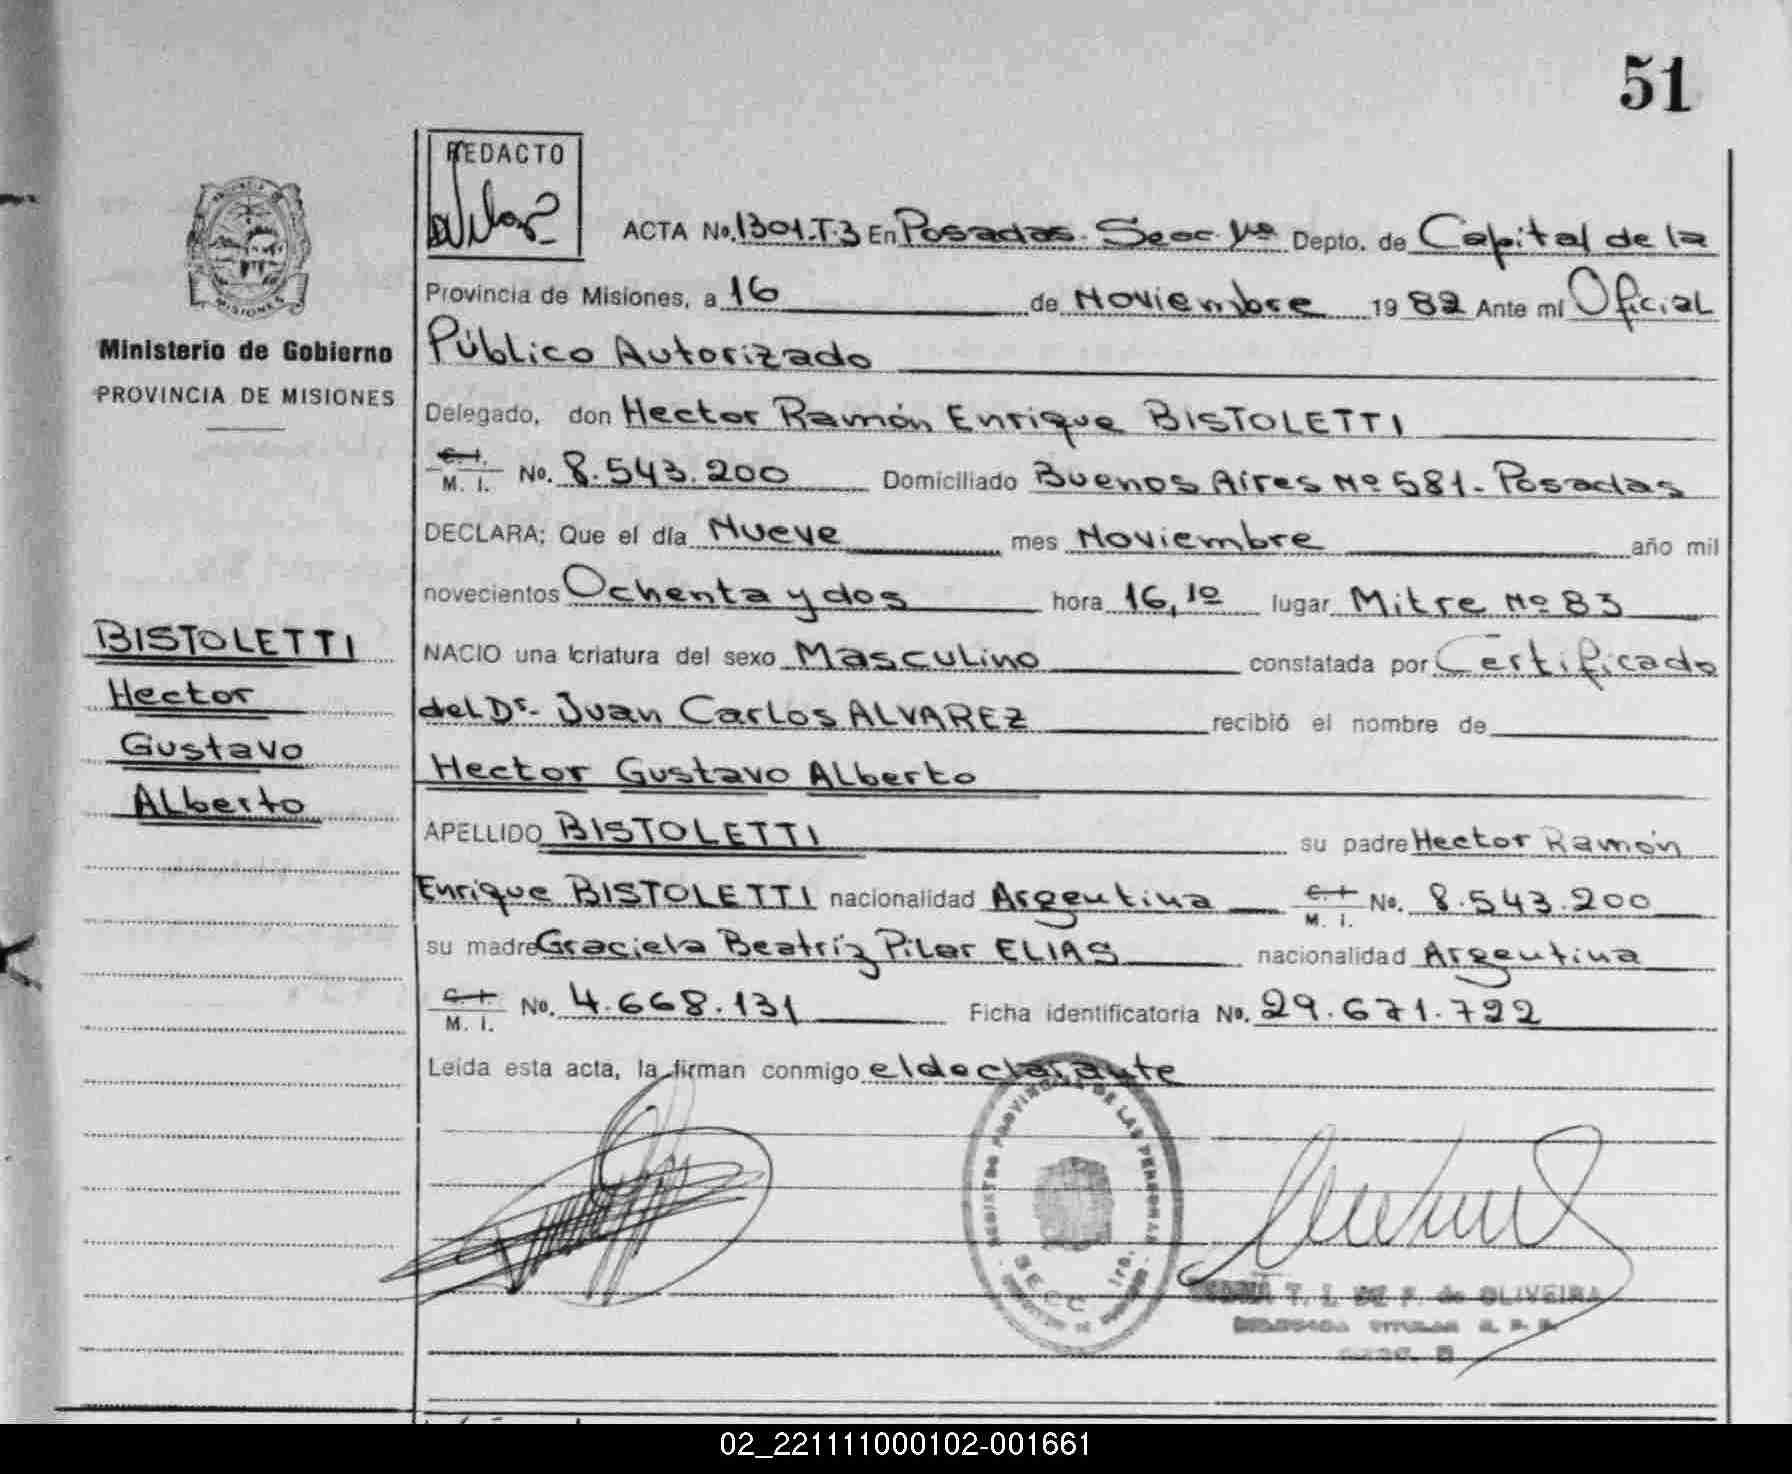 51
REDACTO
ACTA No. 1301.T.3 En Posadas. Secc. 1ra Depto. de Capital de la
Provincia de Misiones, a 16 de Noviembre 1982 Ante mí Oficial
Público Autorizado
Delegado, don Hector Ramón Enrique BISTOLETTI
C. I. M. I. No. 8.543.200 Domiciliado Buenos Aires Nº 581. Posadas
DECLARA; Que el día Nueve mes Noviembre año mil
novecientos Ochenta y dos hora 16,10 lugar Mitre Nº 83
NACIO una criatura del sexo Masculino constatada por Certificado
del Dr. Juan Carlos ALVAREZ recibió el nombre de
Hector Gustavo Alberto
APELLIDO BISTOLETTI su padre Hector Ramón
Enrique BISTOLETTI nacionalidad Argentina C. I. M. I. No. 8.543.200
su madre Graciela Beatriz Pilar ELIAS nacionalidad Argentina
C. I. M. I. No. 4.668.131 Ficha identificatoria No. 29.671.722
Leída esta acta, la firman conmigo el declarante
MISIONES
Ministerio de Gobierno
PROVINCIA DE MISIONES
BISTOLETTI
Hector
Gustavo
Alberto
REGISTRO PROVINCIAL DE LAS PERSONAS
SECC. 1ra.
T. I. DE F. de OLIVEIRA
TITULAR
02_221111000102-001661